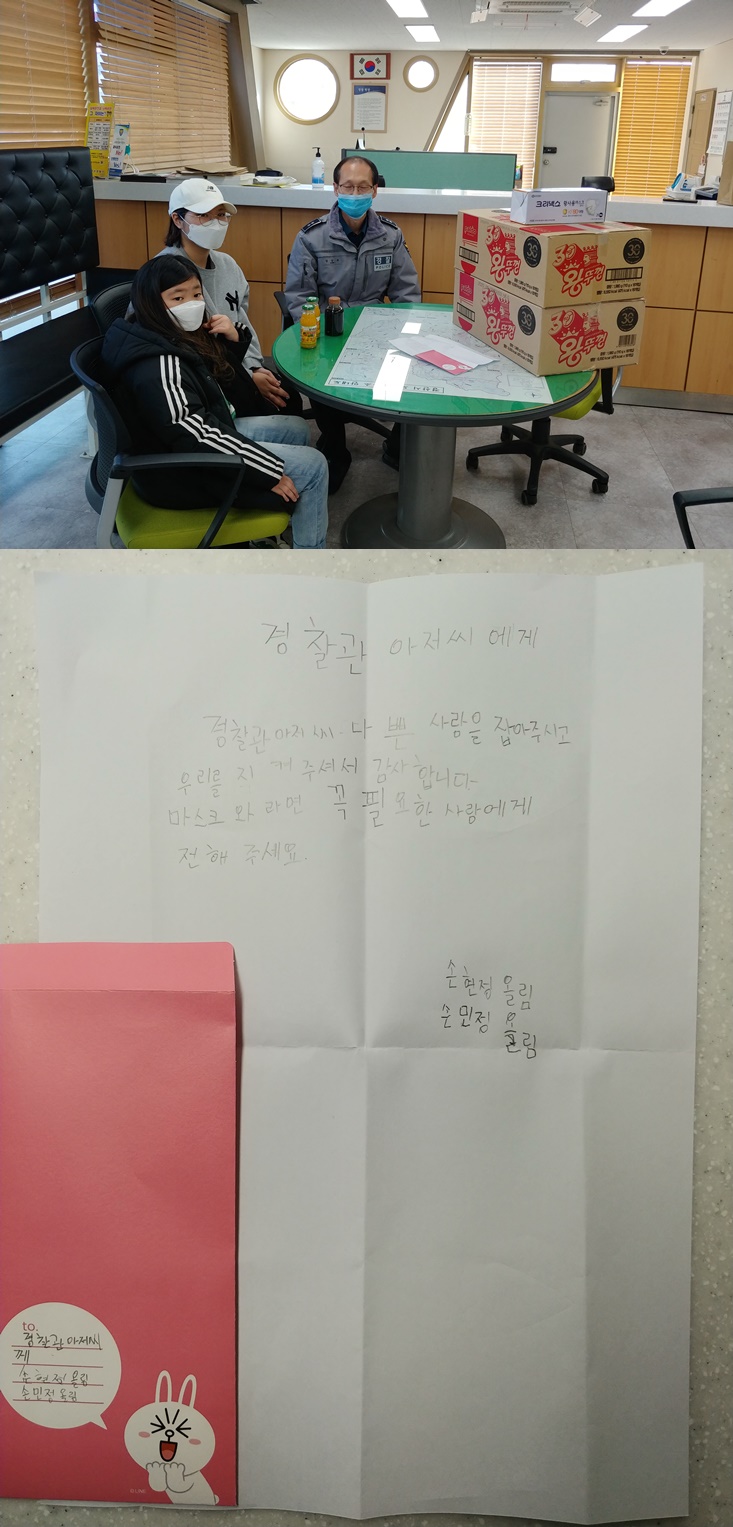 경찰
크리넥스
paldo
30
왕뚜껑
38
paldo
30
왕뚜껑
38
경찰관 아저씨 에게
경찰관아저씨. 나쁜 사람을 잡아주시고
우리를 지켜주셔서 감사합니다
마스크와 라면 꼭 필요한 사람에게
전해 주세요.
손현정 올림
손민정 올림
to.
경찰관아저씨
께
손현정 올림
손민정 올림